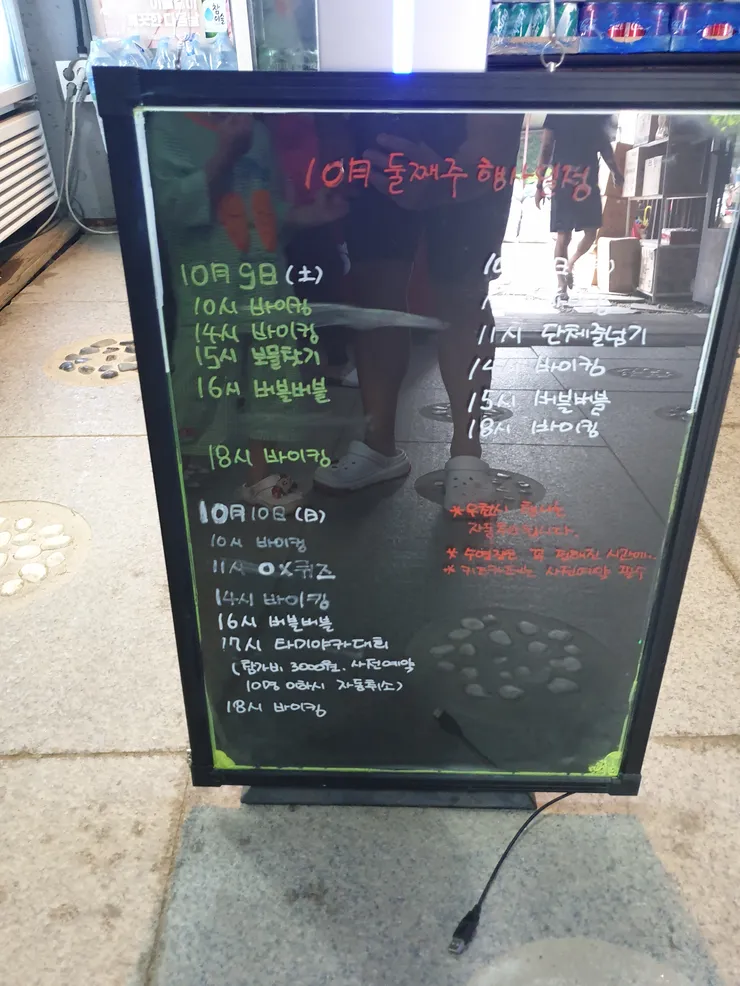 10月 둘째주 행사일정
10月 9日 (土)
10시 바이킹
14시 바이킹
15시 보물찾기
16시 버블버블
18시 바이킹
10月 10日 (日)
10시 바이킹
11시 OX퀴즈
14시 바이킹
16시 버블버블
17시 타미야카대회
(참가비 3000원. 사전예약
10명 이하시 자동취소)
18시 바이킹
11시 단체줄넘기
14시 바이킹
15시 버블버블
18시 바이킹
*우천시
* 수영장은 꼭 정해진 시간에.
* 사전예약 필수